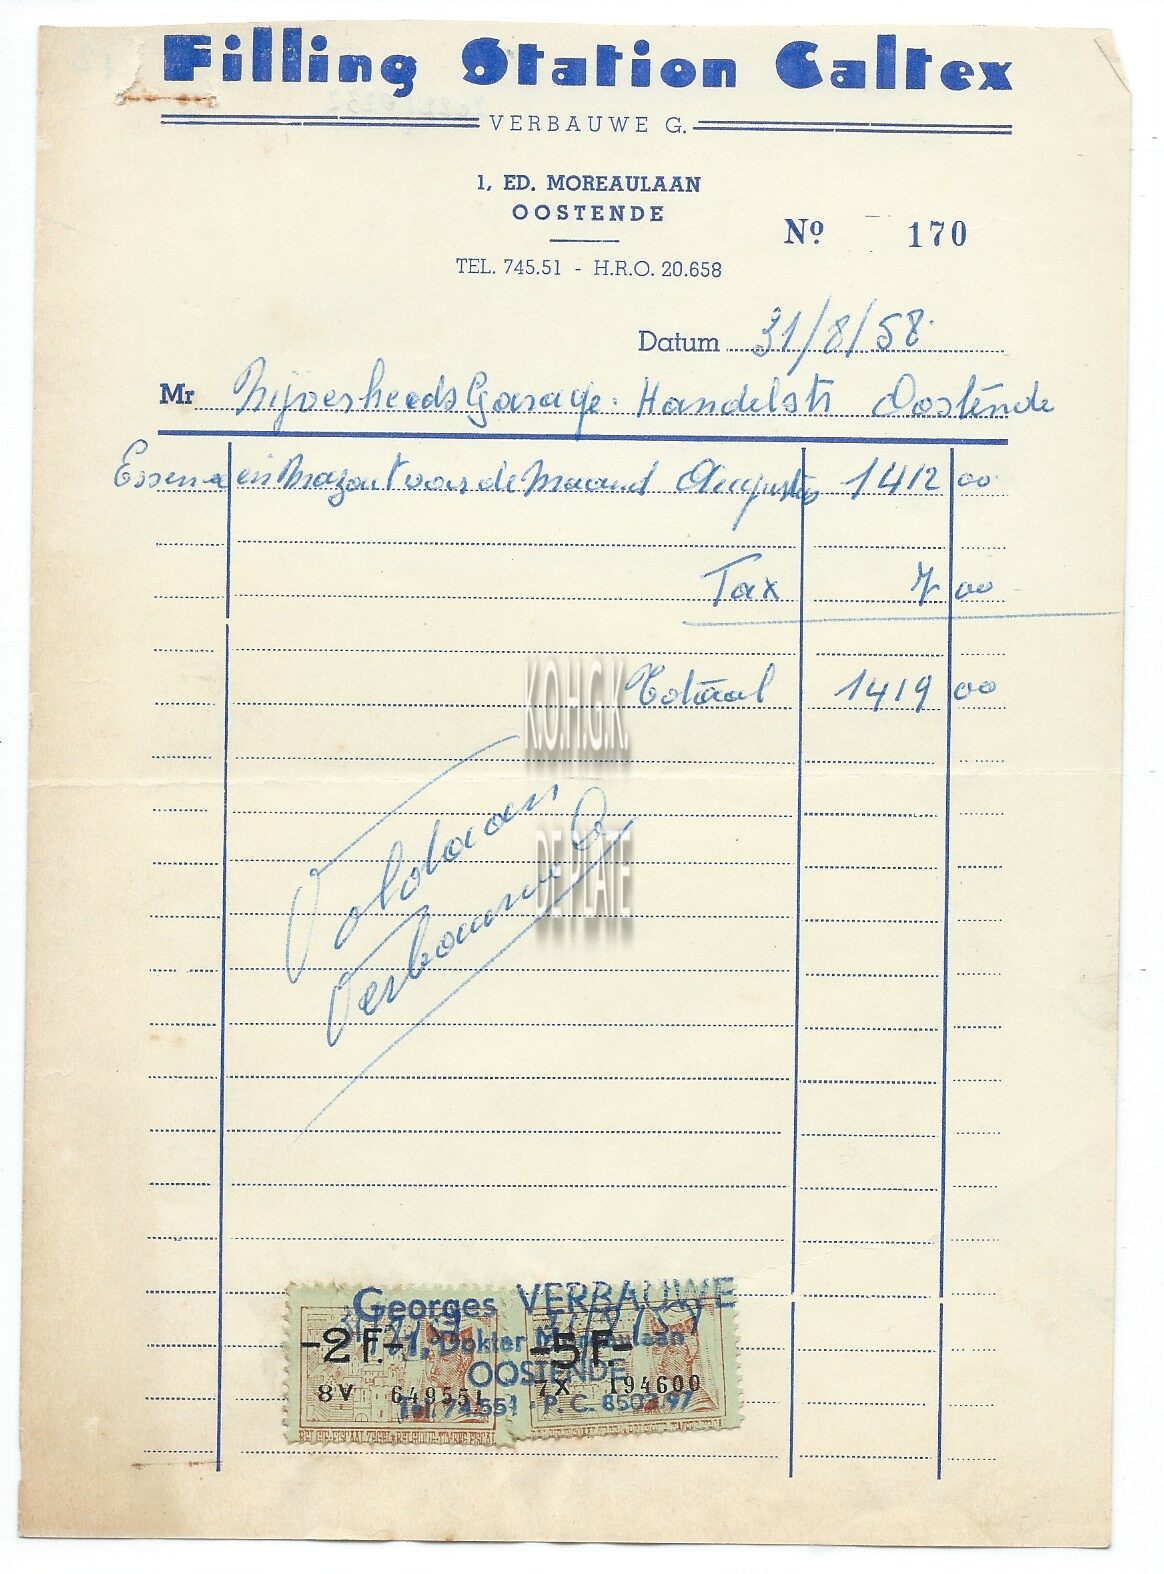 Filling Station Caltex
VERBAUWE G.
1, ED. MOREAULAAN
OOSTENDE
Nº 170
TEL. 745.51 - H.R.O. 20.658
Datum 31/8/58.
Mr Nijverheeds Garage. Handelstr Oostende
Essence en Mazout voor de Maand Augustus 1412 00
Tax 7 00
Totaal 1419 00
K.O.H.G.K.
DE PLATE
Voldaan
Verbauwe G
Georges VERBAUWE
-2 F.- 1, Dokter Moreaulaan -5 F.-
OOSTENDE
8V 649551 7X 194600
Tel. 74.551 - P.C. 8503.97